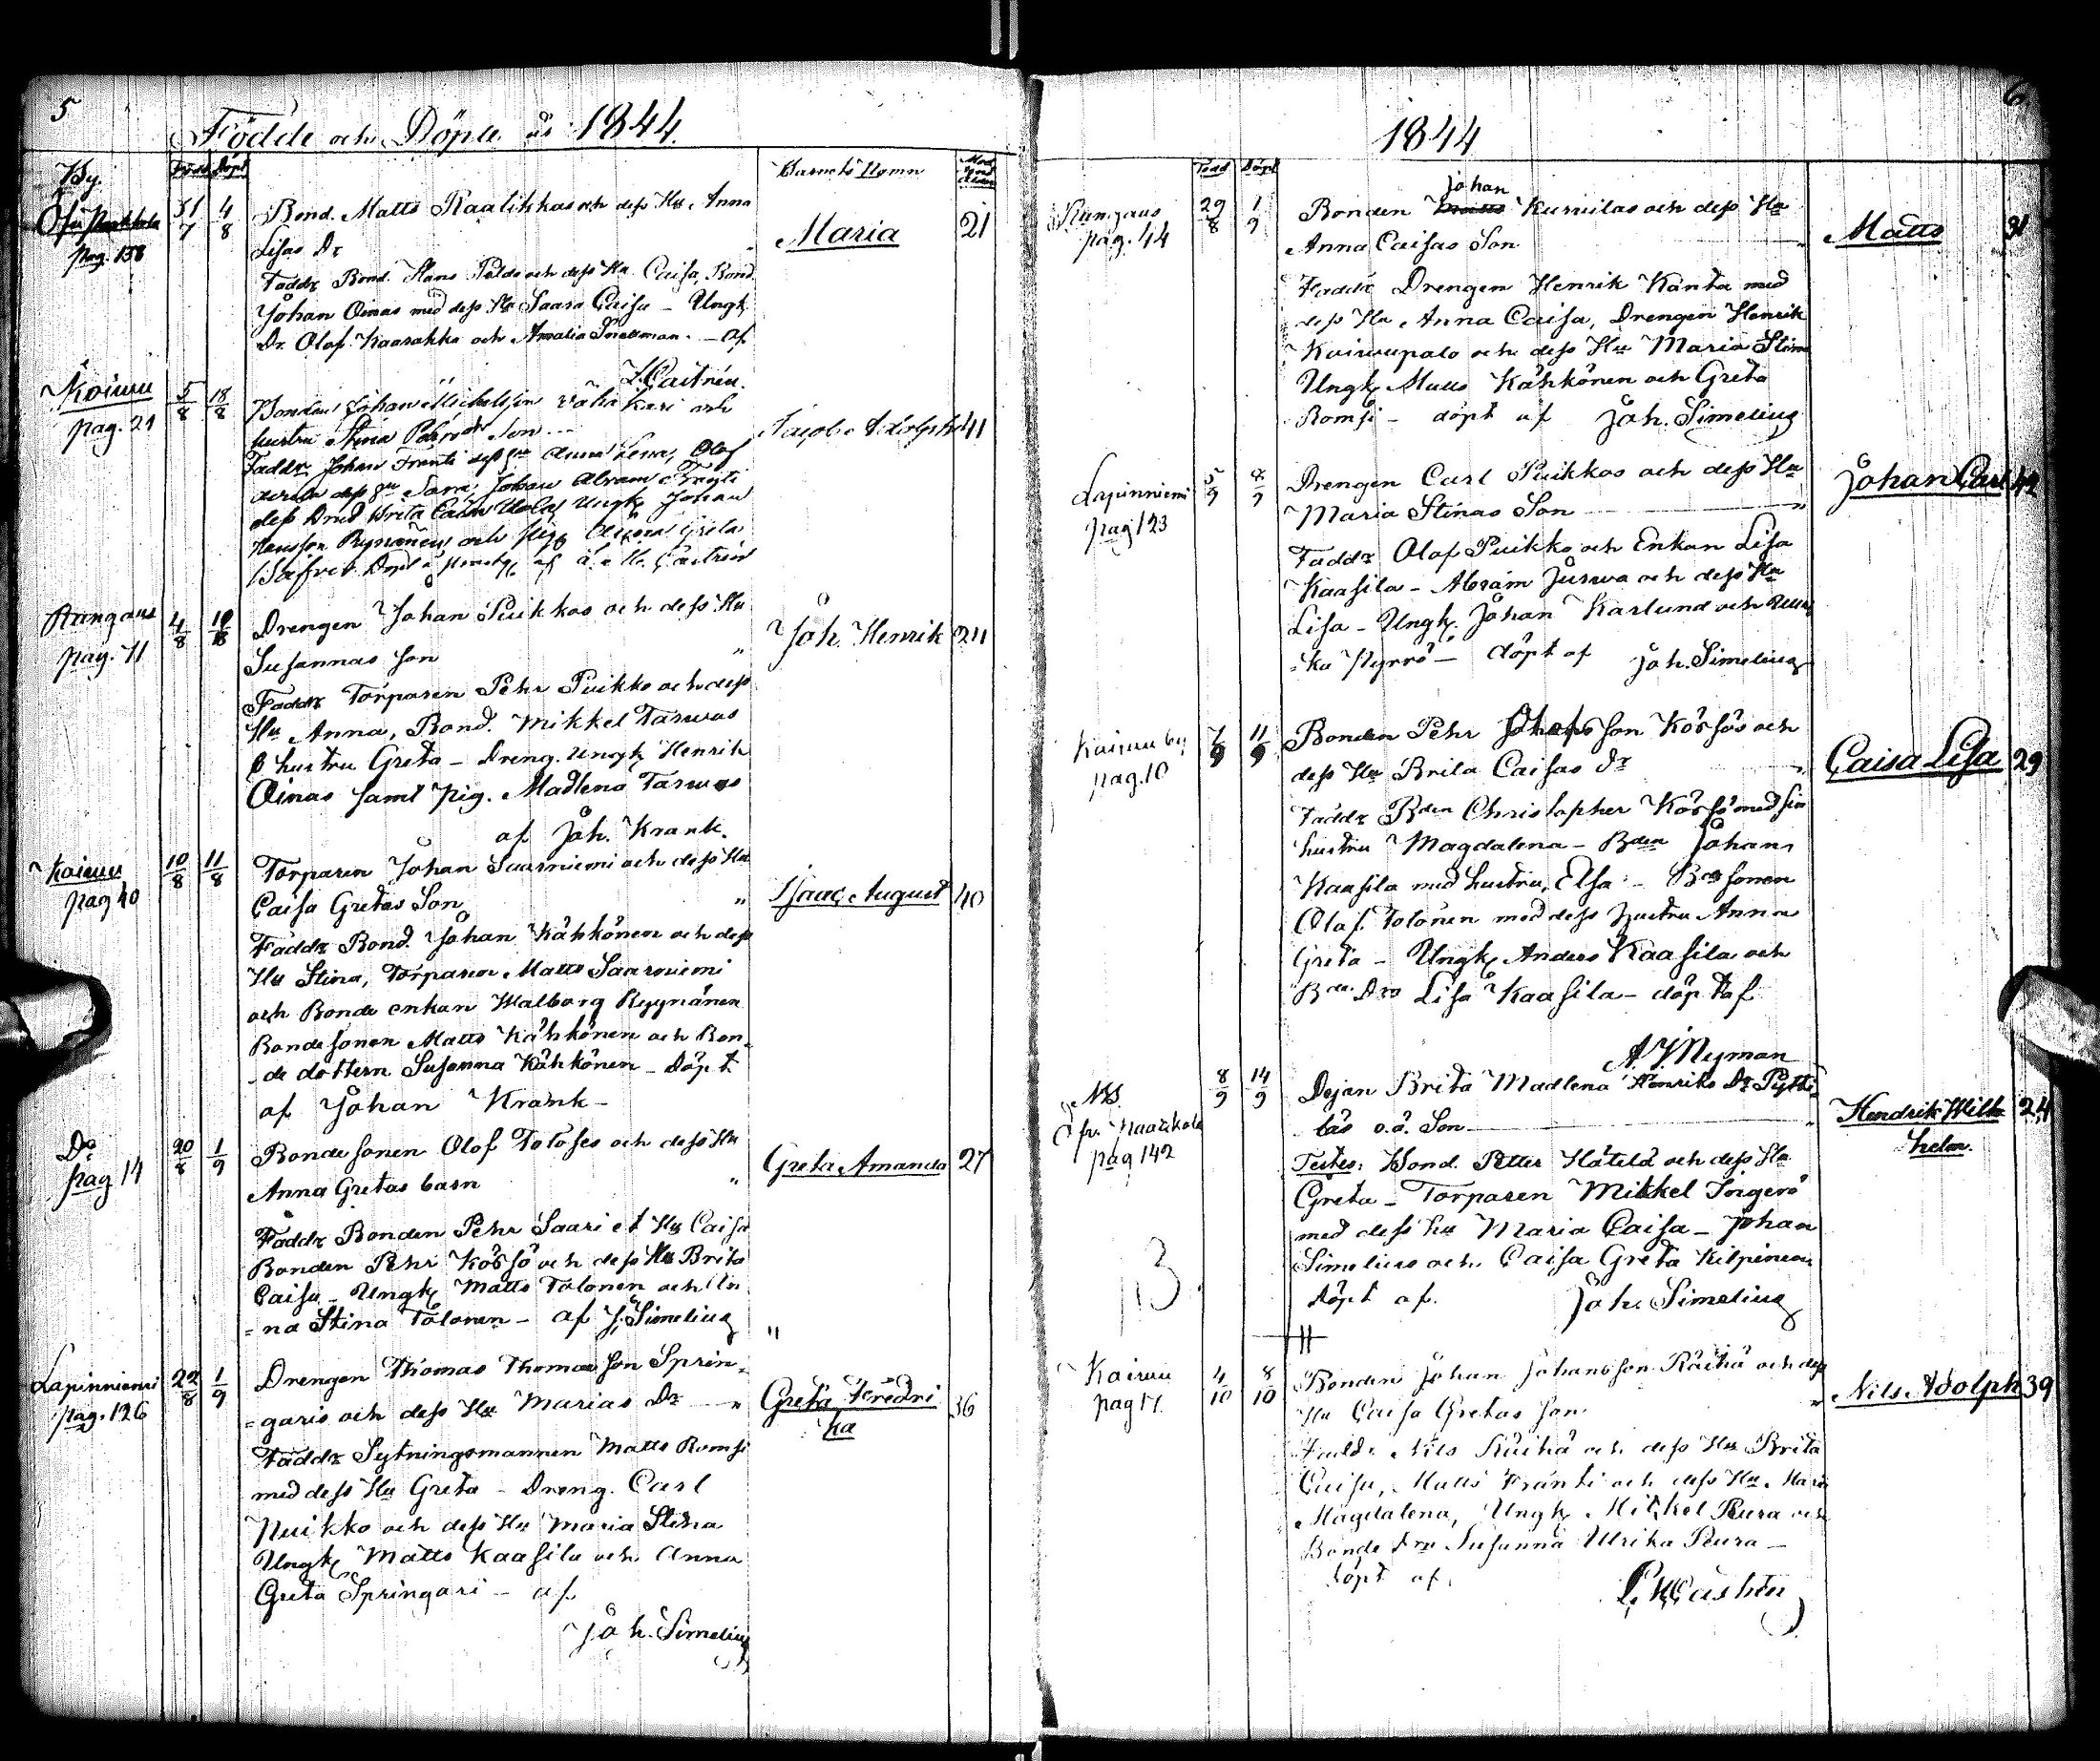 5
Födde och Döpte år 1844.
By.
Född
Döpt
Barnets Namn
pag. 138
31/7
4/8
Bond. Matts Raalikkas och dess Hu Anna
Lisas Dr
Maria
21
Faddr Bond. Hans Peldo och dess Hu Caisa, Bond.
Johan Oinas med dess Hu Saara Caisa - Ungk.
Dr. Olof Kaarakka och Amalia Snellman. - af
Castrén.
Koivu
pag. 21
5/8
18/8
Bonden Johan Michelsson Vähäkari och
hustru Stina Son
Jacob Adolph
41
Faddr Johan Franti dess Hu Anna Lena, Olof
dess Hu Sara, Johan Abram Franti
Ungk Johan
och pig. Anna Greta
af Castrén
Rangans
pag. 71
4/8
10/8
Drengen Johan Puikkos och dess Hu
Susannas son "
Joh. Henrik
24
Faddr Torparen Pehr Puikko och dess
Hu Anna, Bond. Mikkel Tarwas
hustru Greta - Dreng. Ungk Henrik
Oinas samt Pig. Madlena Tarwas
af Joh. Krank.
Koivu
pag 40
10/8
11/8
Torparen Johan Saarniemi och dess Hu
Caisa Gretas Son "
Isaac August
40
Faddr Bond. Johan Kähkönen och dess
Hu Stina, Torparen Matts Saarniemi
och Bonde enkan Walborg Ryynänen
Bondesonen Matts Kähkönen och Bon-
-de dottern Susanna Kähkönen - Döpt
af Johan Krank -
Do
pag 14
20/8
1/9
Bondesonen Olof Toloses och dess Hu
Anna Gretas barn "
Greta Amanda
27
Faddr Bonden Pehr Saari et Hu Caisa
Bonden Pehr Körkö och dess Hu Brita
Caisa - Ungk Matts Tolonen och An
=na Stina Tolonen - af J. Simelius
"
Lapinniemi
pag. 126
22/8
1/9
Drengen Thomas Thomasson Sprin=
=garis och dess Hu Marias Dr "
Greta Fredri
ka
36
Faddr Sytningsmannen Matts Romsi
med dess Hu Greta - Dreng. Carl
Puikko och dess Hu Maria Stina
Ungk Matts Kaasila och Anna
Greta Springari - af
Joh. Simelius
6
1844
Född
Döpt
Rangans
pag. 44
29/8
1/9
Johan
Bonden Kurvilas och dess Hu
Anna Caisas Son
Matts
31
Faddr Drengen Henrik Kanta med
dess Hu Anna Caisa, Drengen Henrik
Koivupalo och dess Hu Maria Stina
Ungk Matts Kähkönen och Greta
Romsi - döpt af Joh. Simelius
Lapinniemi
pag 123
5/9
8/9
Drengen Carl Puikkos och dess Hu
Maria Stinas Son "
Johan Carl
42
Faddr Olof Puikko och Enkan Lisa
Kaasila - Abram Jurwa och dess Hu
Lisa - Ungk. Johan Karlund och Ulri
=ka Pyrrö - döpt af Joh. Simelius
Koivu by
pag. 10
7/9
11/9
Bonden Pehr Johansson Körkös och
dess Hu Brita Caisas Dr "
Caisa Lisa
29
Faddr Bden Christopher Körkö med sin
hustru Magdalena - Bden Johan
Kaasila med hustru Elsa - Bdesonen
Olof Tolonen med dess hustru Anna
Greta - Ungk Anders Kaasila och
Bde Dra Lisa Kaasila - döpt af
Nyman
NB.
pag 142
8/9
14/9
Dejan Brita Madlena Henriks Dr
o.ä. Son "
Hendrik Wilh
helm.
24
Testes: Bond. Petter Hätälä och dess Hu
Greta - Torparen Mikkel Ingerö
med dess hu Maria Caisa - Johan
Simelius och Caisa Greta Kilpinen
döpt af. Joh. Simelius
13
Koivu
pag 17.
4/10
8/10
Bonden Johan Johansson Räihä och dess
Hu Caisa Gretas son "
Nils Adolph
39
Faddr Nils Räihä och dess Hu Brita
Caisa, Matts Franti och dess Hu Maria
Magdalena, Ungk Mikkel Peura och
Bonde Dra Susanna Ulrika Peura -
döpt af.
Castrén